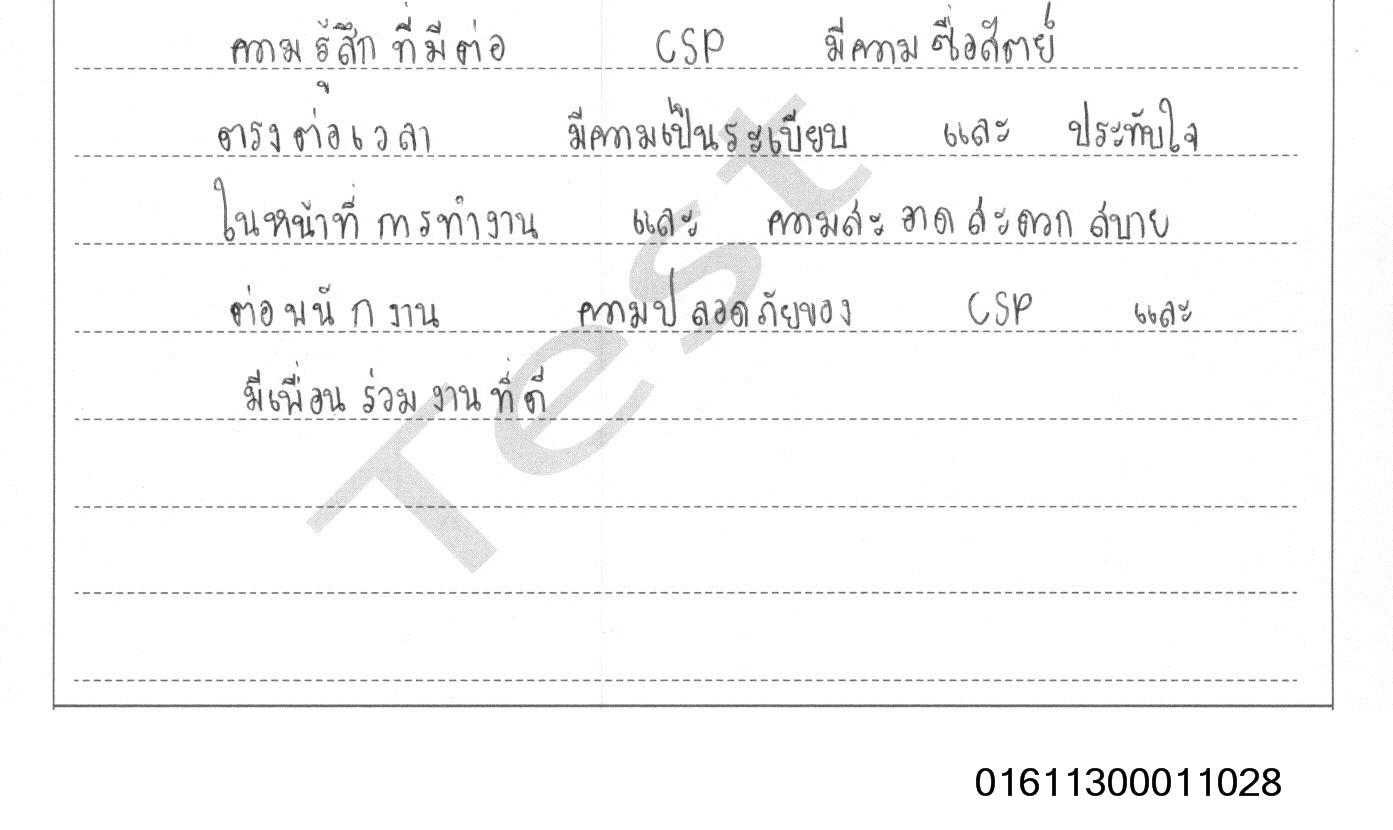 ความรู้สึกที่มีต่อ CSP มีความซื่อสัตย์
ตรงต่อเวลา มีความเป็นระเบียบ และ ประทับใจ
ในหน้าที่การทำงาน และ ความสะอาดสะดวกสบาย
ต่อพนักงาน ความปลอดภัยของ CSP และ
มีเพื่อนร่วมงานที่ดี
Test
01611300011028